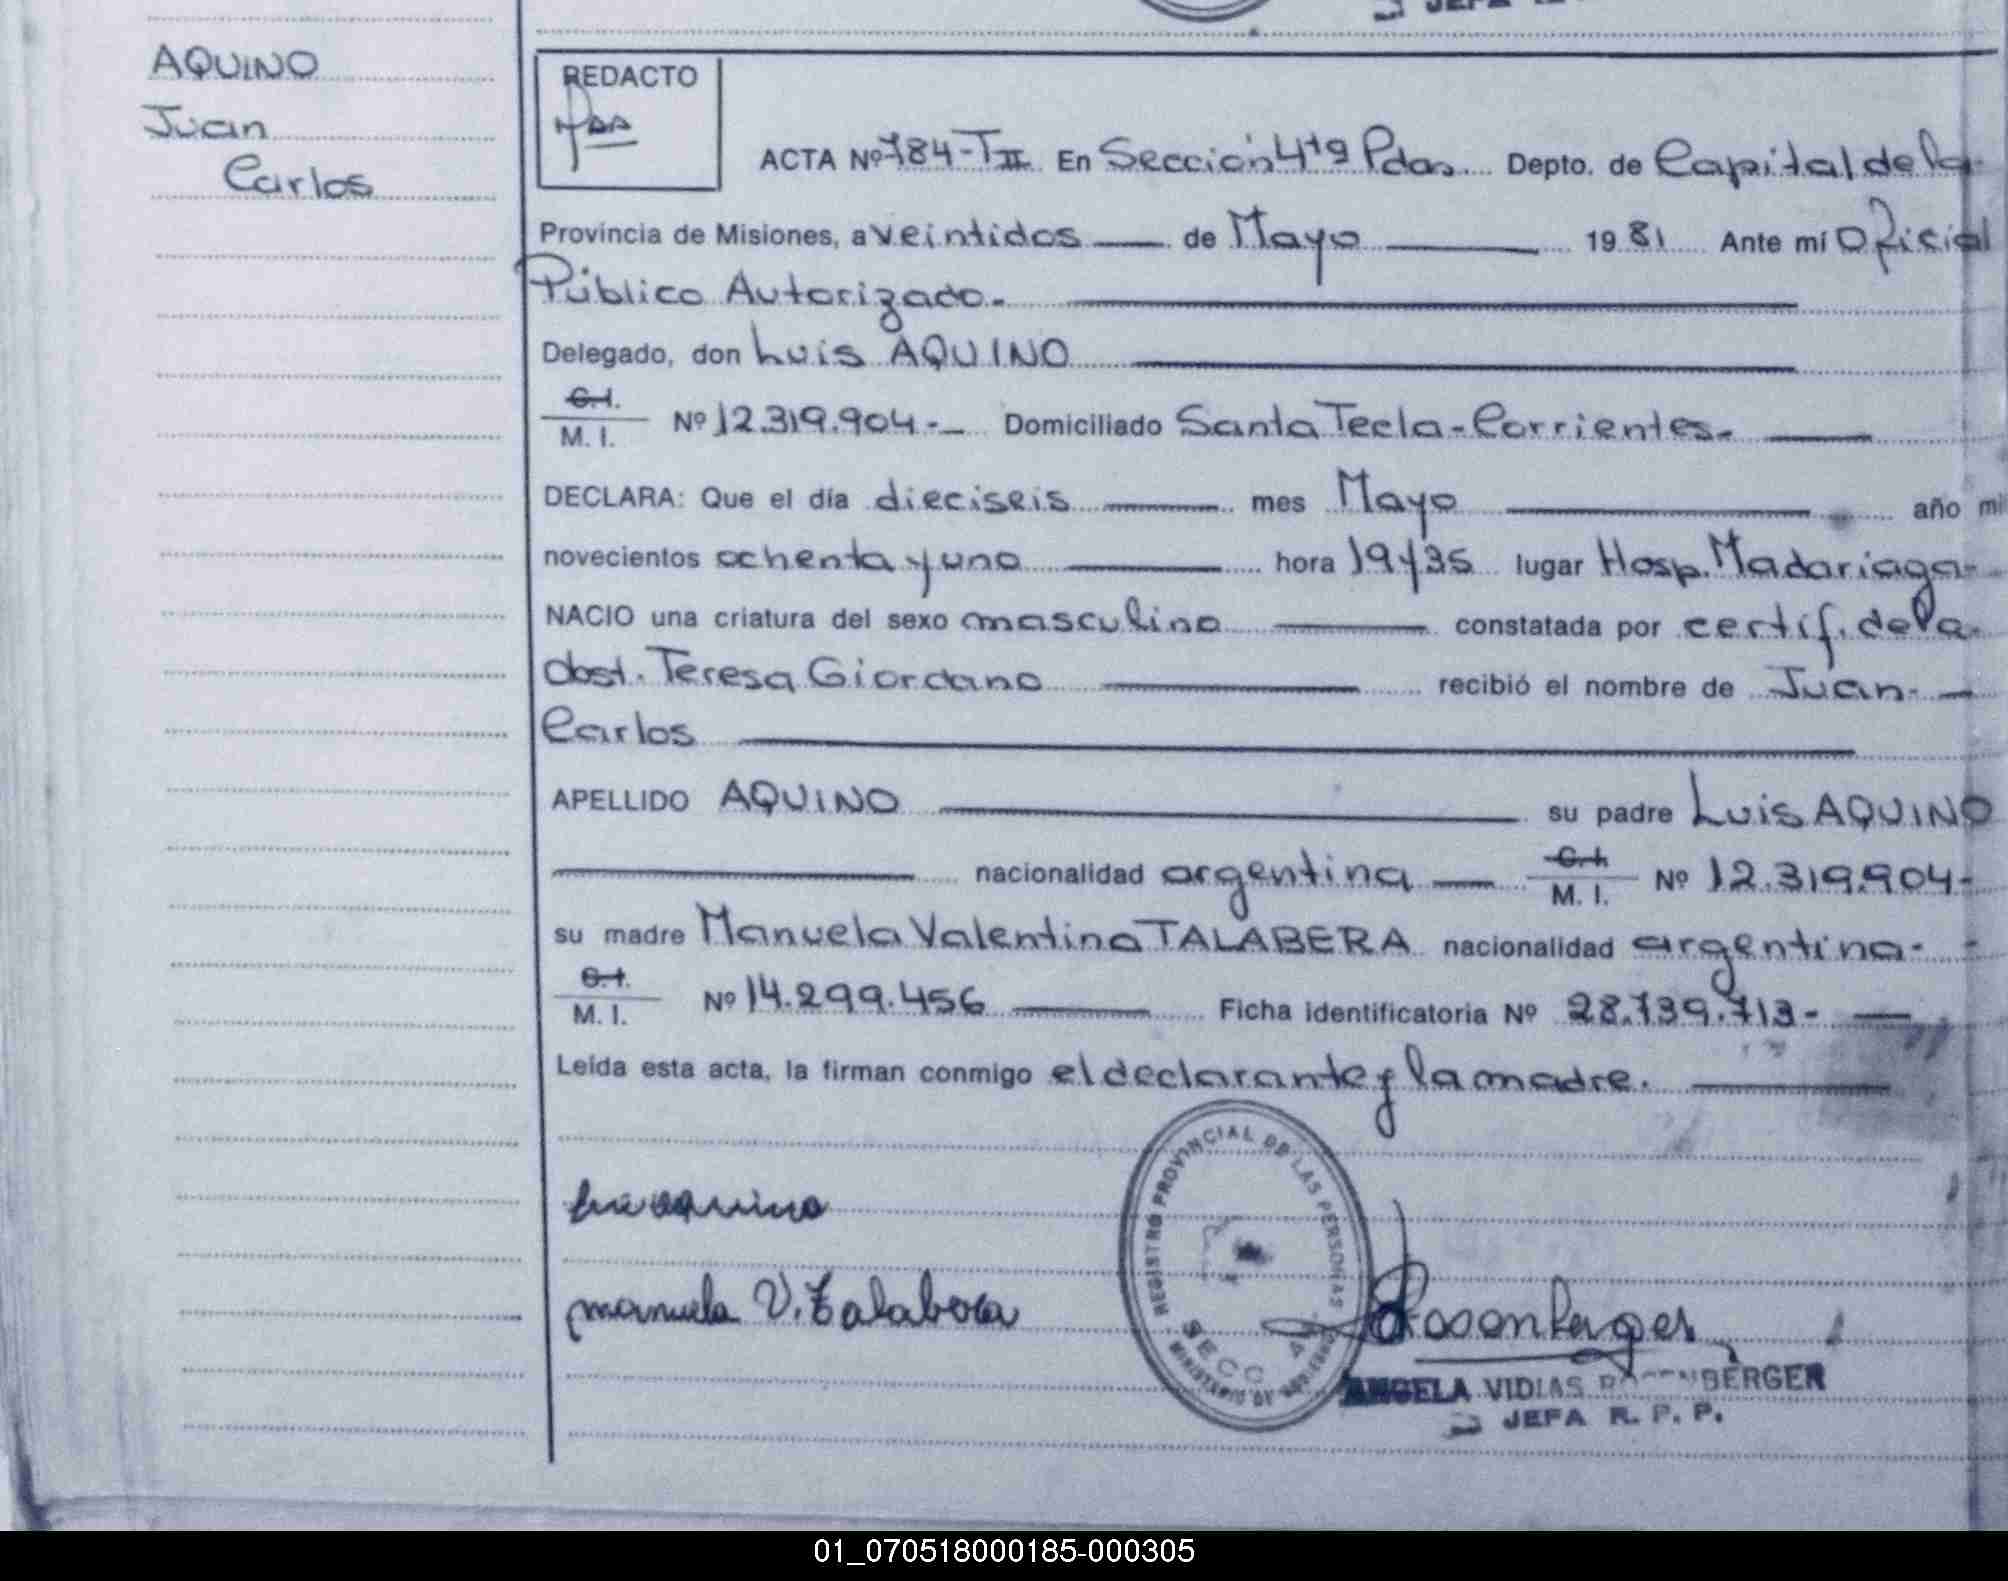 AQUINO
Juan
Carlos
REDACTO
ACTA Nº 784-T II En Sección 4ta Pdas. Depto. de Capital de la
Provincia de Misiones, a veintidos de Mayo 1981 Ante mí Oficial
Público Autorizado.-
Delegado, don Luis AQUINO
C.I.
M. I. Nº 12.319.904.- Domiciliado Santa Tecla-Corrientes-
DECLARA: Que el día dieciseis mes Mayo año mi
novecientos ochenta y uno hora 19 y 35 lugar Hosp. Madariaga-
NACIO una criatura del sexo masculino constatada por certif. de la
obst. Teresa Giordano recibió el nombre de Juan-
Carlos
APELLIDO AQUINO su padre Luis AQUINO
nacionalidad argentina C.I.
M. I. Nº 12.319.904-
su madre Manuela Valentina TALABERA nacionalidad argentina-
C.I.
M. I. Nº 14.299.456 Ficha identificatoria Nº 28.739.713-
Leída esta acta, la firman conmigo el declarante y la madre.
REGISTRO PROVINCIAL DE LAS PERSONAS
SECC. 4
MINISTERIO DE GOBIERNO
manuela V. Talabera
Rosenberger
ANGELA VIDIAS ROSENBERGER
JEFA R. P. P.
01_070518000185-000305